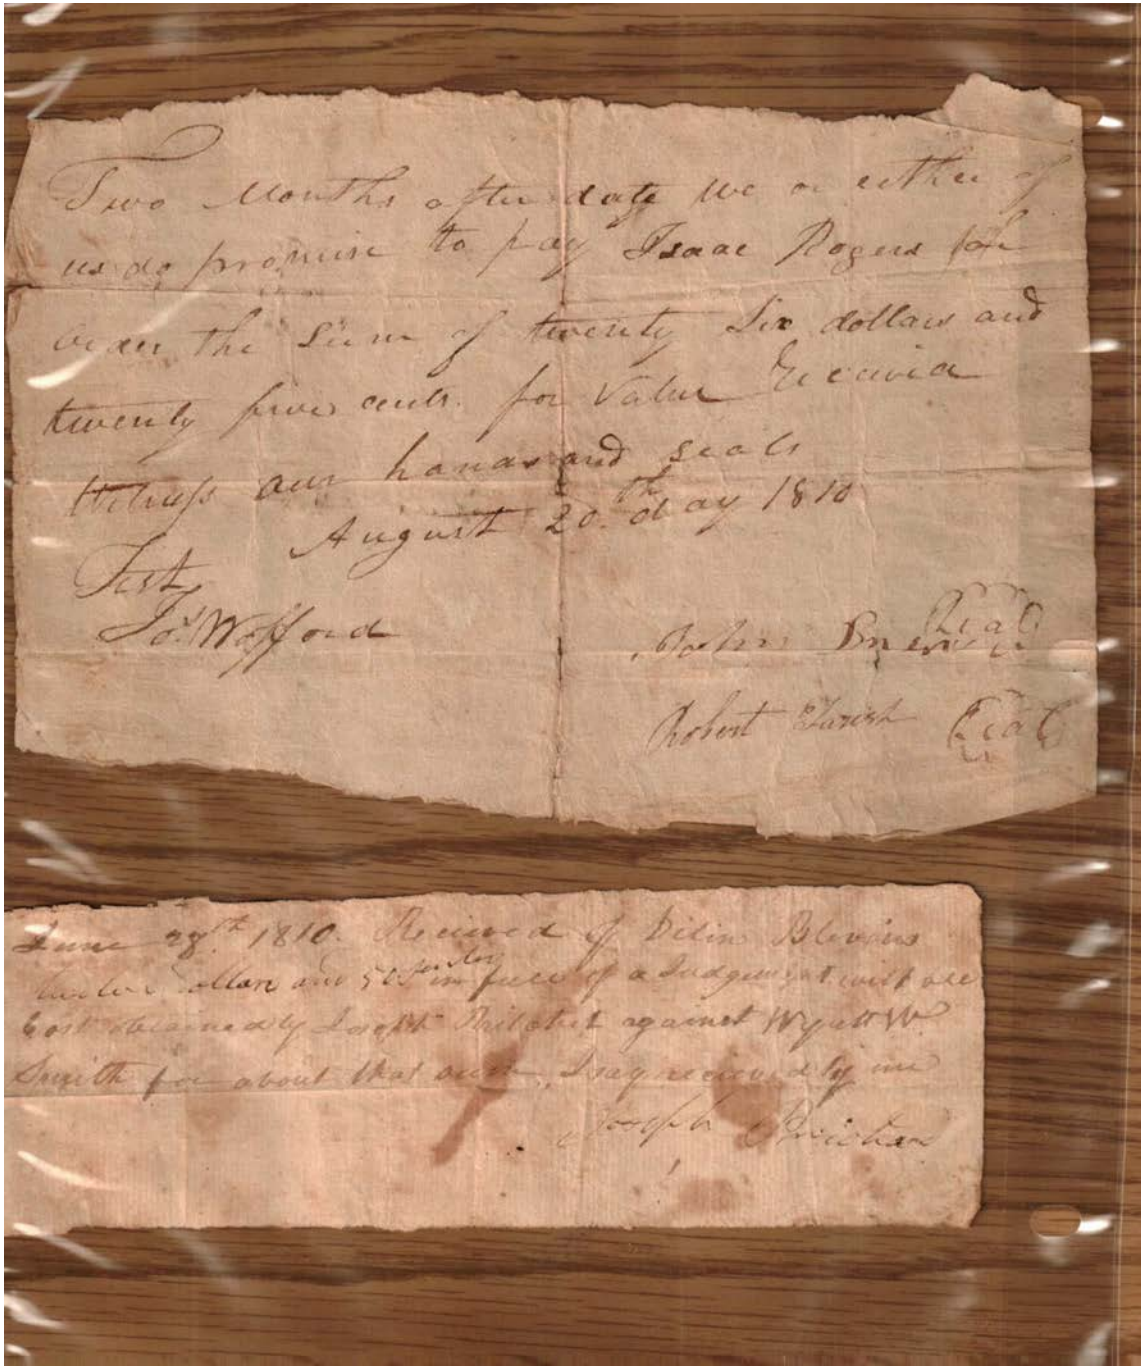 Two Months after date we or either of
us do promise to pay Isaac Rogers
order the Sum of twenty Six dollars and
twenty five cents for Value
Witness our hands and seals
August 20th day 1810
Test
Jos Wofford
John Seal
Robert Seal
June 28th 1810. Received of Dilin Blevins
Dollars and 50 in full of a Judgement with all
Cost obtained by Joseph against Wyatt W
Smith for about that sum, I say recieved by me
Joseph